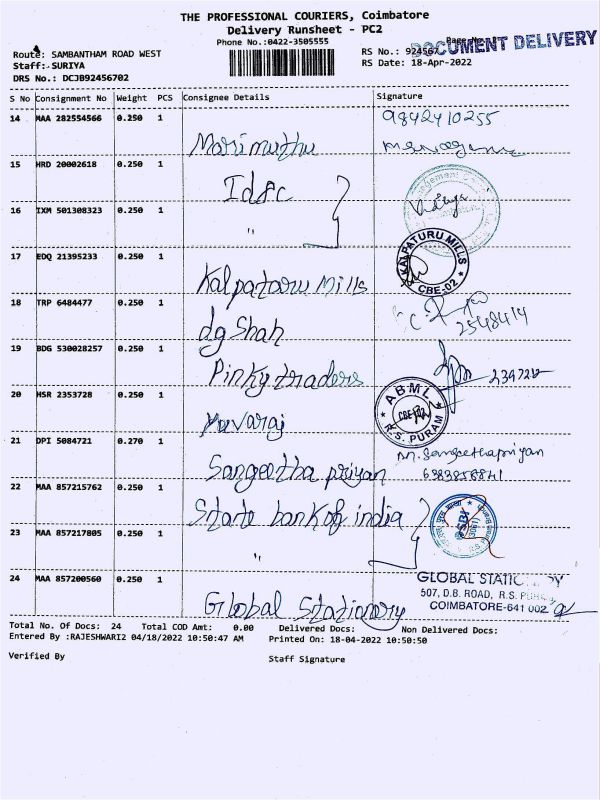 THE PROFESSIONAL COURIERS, Coimbatore
Delivery Runsheet - PC2
Phone No.:0422-3505555
DOCUMENT DELIVERY
Route: SAMBANTHAM ROAD WEST
RS No.: 924567
Staff:-SURIYA
RS Date: 18-Apr-2022
DRS No.: DCJB92456702
S No Consignment No Weight PCS Consignee Details Signature
14 MAA 282554566 0.250 1 Marimuthu 9842410255
15 HRD 20002618 0.250 1 Idfc Vidya
16 IXM 501308323 0.250 1 "
17 EDQ 21395233 0.250 1 Kalpataru Mills KALPATURU MILLS CBE-02
18 TRP 6484477 0.250 1 dg Shah 2548414
19 BDG 530028257 0.250 1 Pinky traders
20 HSR 2353728 0.250 1 Yuvaraj ABML CBE-02 R.S. PURAM
21 DPI 5084721 0.270 1 Sangeetha priyan M. Sangeethapriyan
22 MAA 857215762 0.250 1 State bank of india SBI
23 MAA 857217805 0.250 1 "
24 MAA 857200560 0.250 1 Global Stationery
GLOBAL
507, D.B. ROAD, R.S.
COIMBATORE-641 002
Total No. Of Docs: 24 Total COD Amt: 0.00 Delivered Docs: Non Delivered Docs:
Entered By :RAJESHWARI2 04/18/2022 10:50:47 AM Printed On: 18-04-2022 10:50:50
Verified By Staff Signature